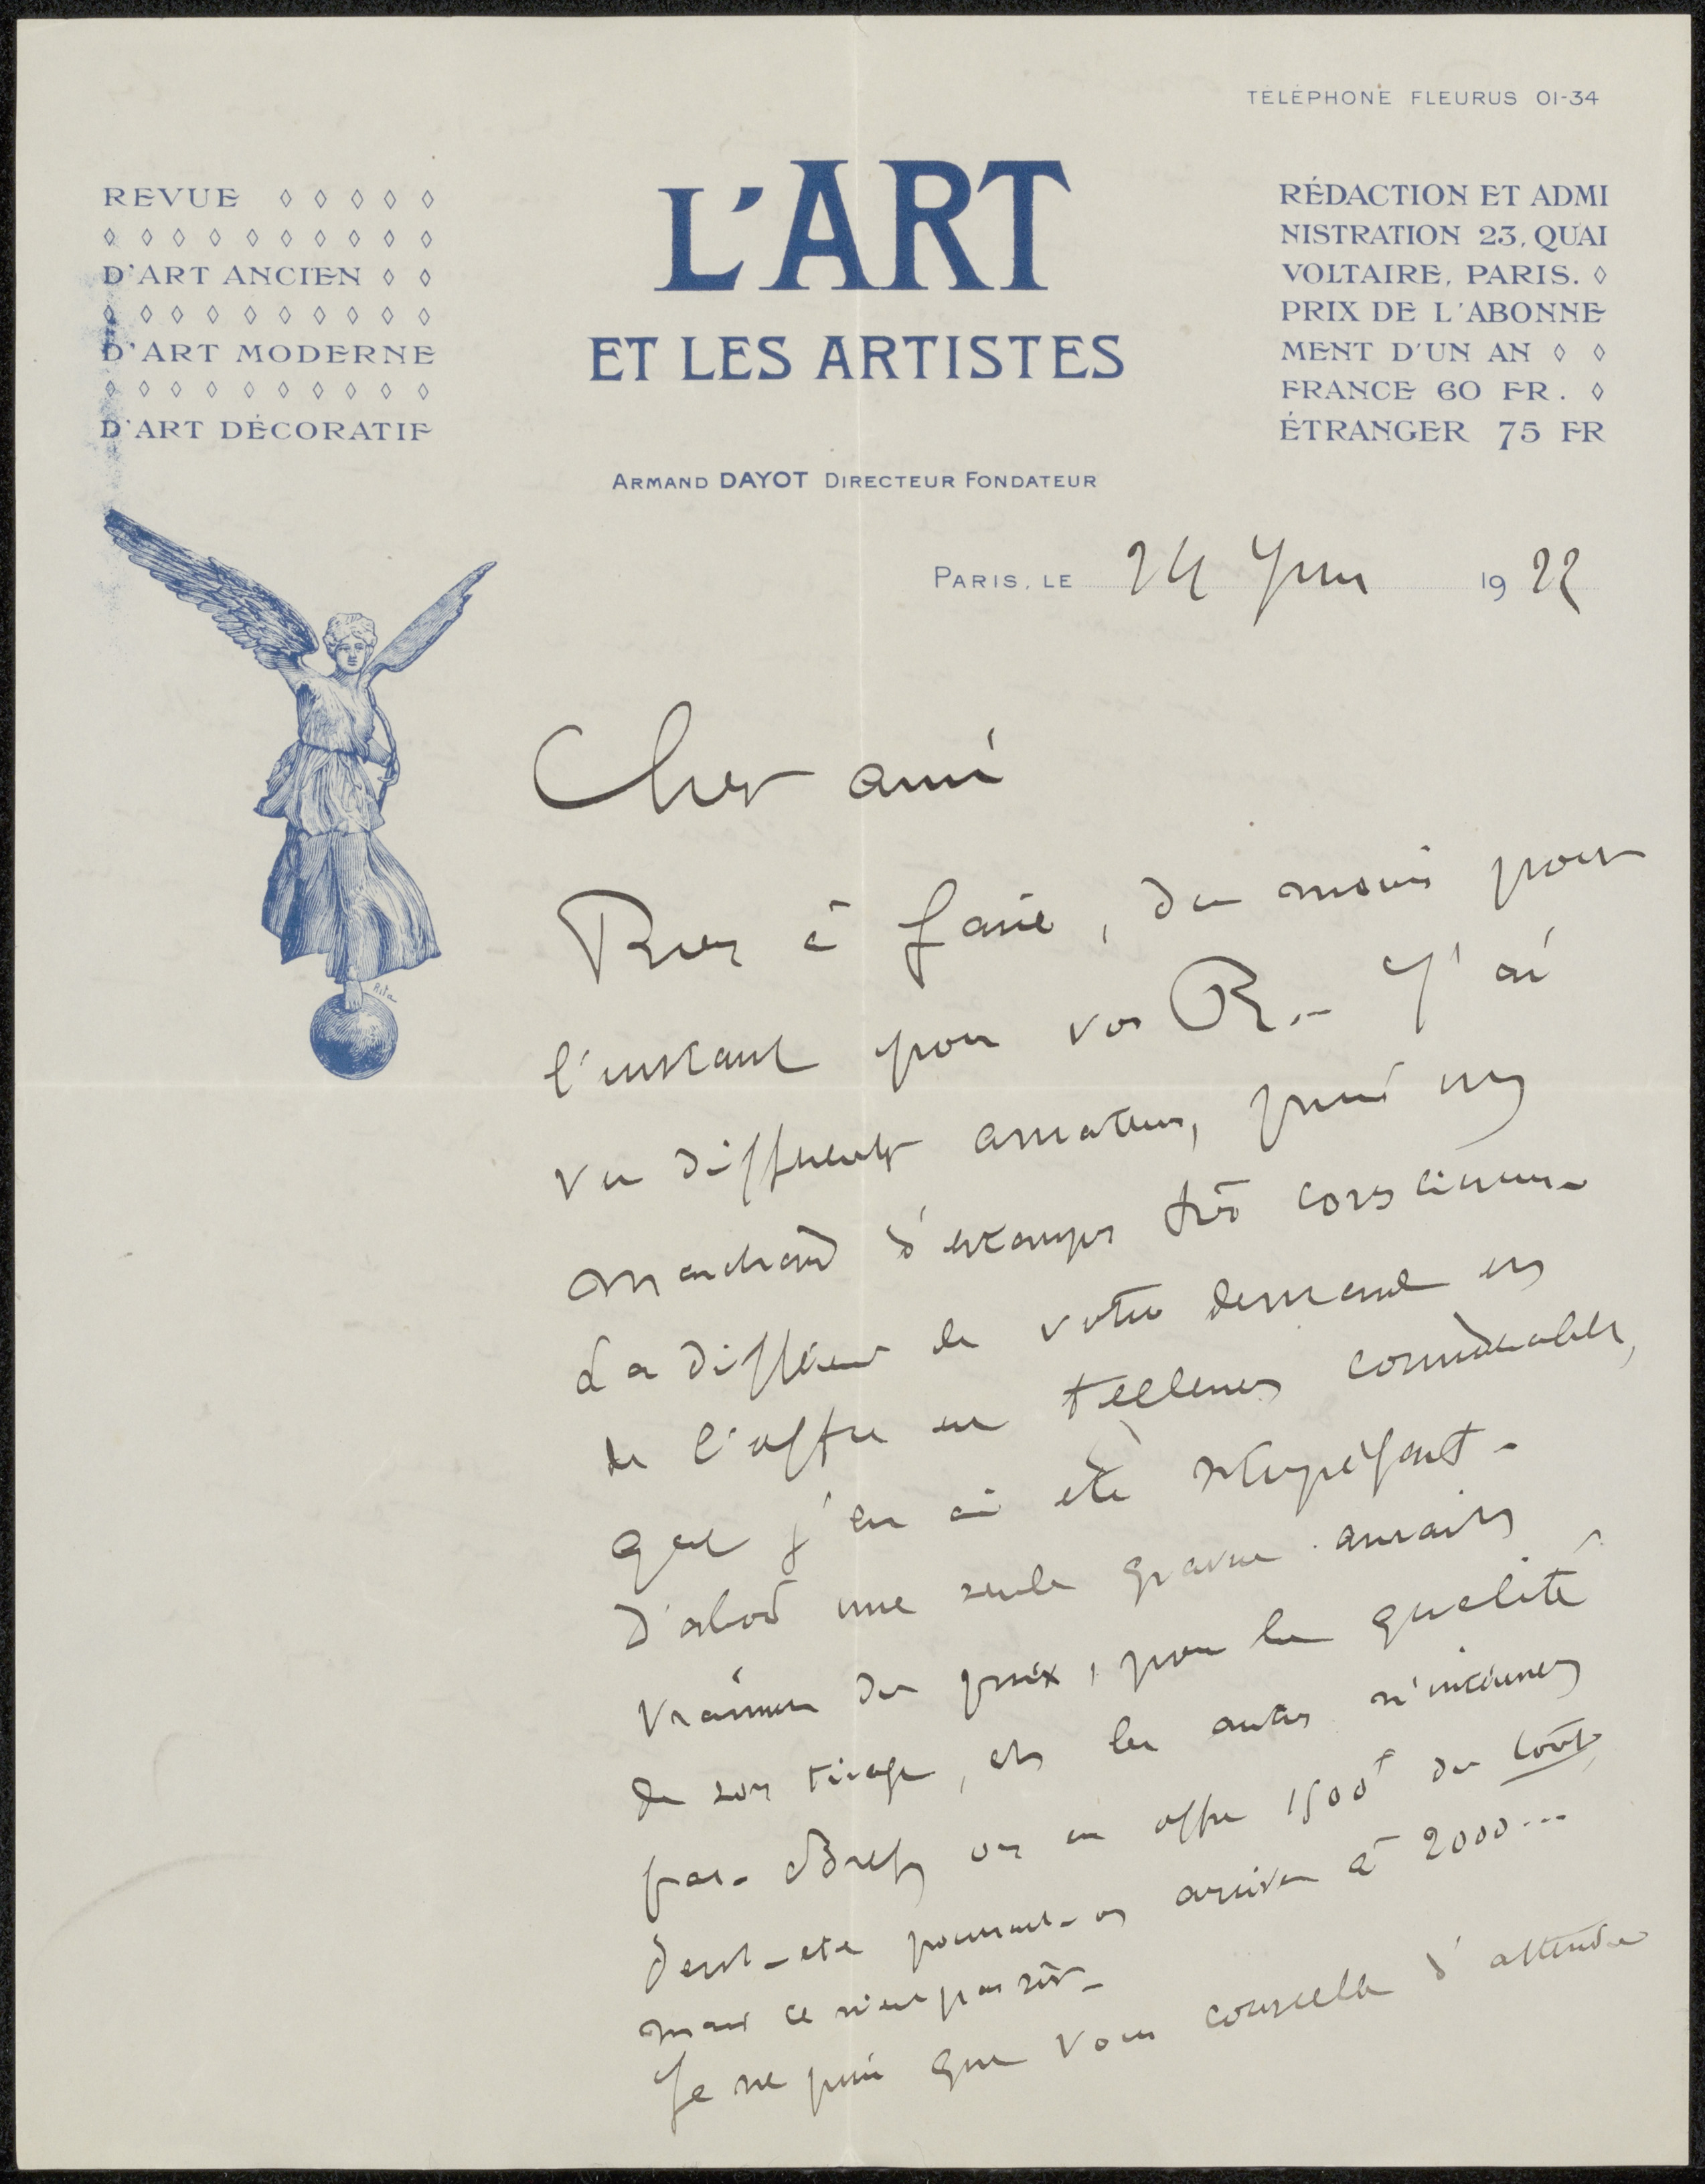 TÉLÉPHONE FLEURUS 01-34
REVUE
D'ART ANCIEN
D'ART MODERNE
D'ART DÉCORATIF
L'ART
ET LES ARTISTES
ARMAND DAYOT DIRECTEUR FONDATEUR
RÉDACTION ET ADMI
NISTRATION 23, QUAI
VOLTAIRE, PARIS.
PRIX DE L'ABONNE
MENT D'UN AN
FRANCE 60 FR.
ÉTRANGER 75 FR
PARIS, LE 24 Juin 1922
Rita
Cher ami
Rien à faire, du moins pour
l'instant pour vos R.- J'ai
vu différents amateurs, puis un
marchand d'estampes très consciencieux-
La différence de votre demande et
de l'offre est tellement considérable,
que j'en ai été stupéfait-
D'abord une seule gravure aurait
vraiment du prix, pour la qualité
de son tirage, et les autres n'intéressent
pas- Bref, on en offre 1500f du tout,
Peut-être pourrait-on arriver à 2000...
mais ce n'est pas sûr-
Je ne puis que vous conseiller d'attendre